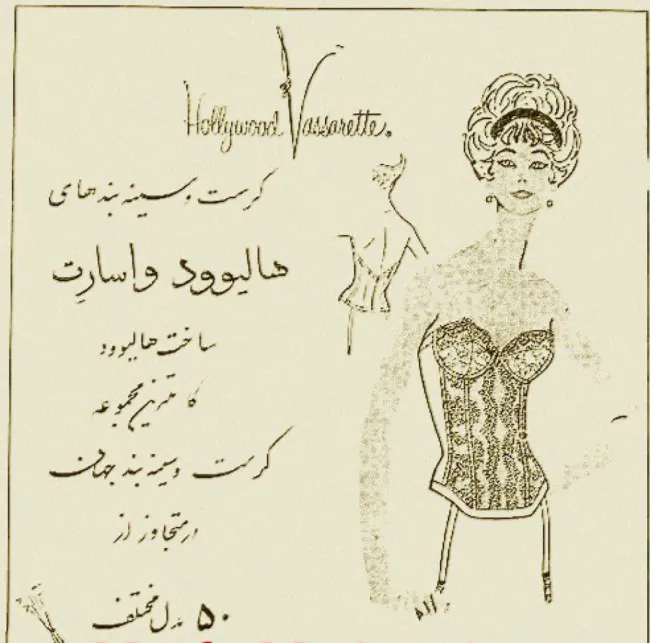 Hollywood Vassarette.
کرست و سینه بند های
هالیوود واسارِت
ساخت هالیوود
کاملترین مجموعه
کرست و سینه بند جهان
در متجاوز از
۵۰ مدل مختلف